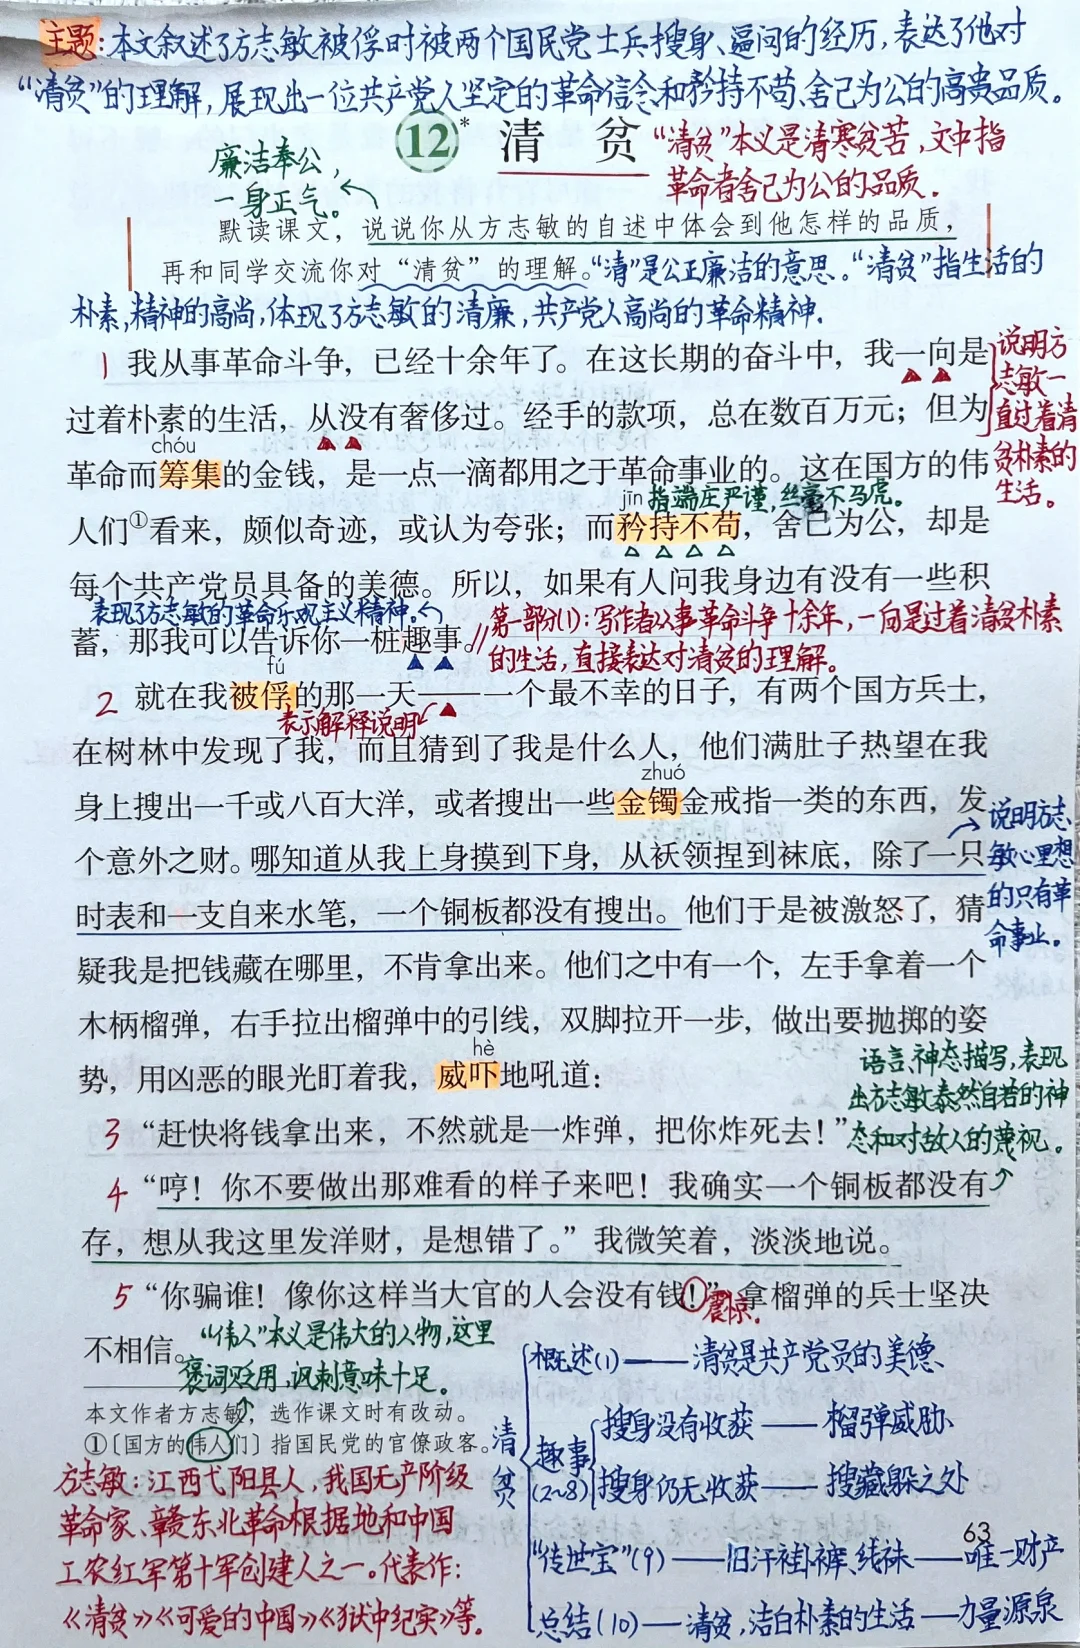 主题:本文叙述了方志敏被俘时被两个国民党士兵搜身、逼问的经历,表达了他对
“清贫”的理解,展现出一位共产党人坚定的革命信念和矜持不苟、舍己为公的高贵品质。
12* 清 贫
“清贫”本义是清寒贫苦,文中指
革命者舍己为公的品质.
廉洁奉公,
一身正气。
默读课文,说说你从方志敏的自述中体会到他怎样的品质,
再和同学交流你对“清贫”的理解。
“清”是公正廉洁的意思。“清贫”指生活的
朴素,精神的高尚,体现了方志敏的清廉,共产党人高尚的革命精神.
1 我从事革命斗争,已经十余年了。在这长期的奋斗中,我一向是
过着朴素的生活,从没有奢侈过。经手的款项,总在数百万元;但为
chóu
革命而筹集的金钱,是一点一滴都用之于革命事业的。这在国方的伟
jīn 指端庄严谨,丝毫不马虎。
人们①看来,颇似奇迹,或认为夸张;而矜持不苟,舍己为公,却是
每个共产党员具备的美德。所以,如果有人问我身边有没有一些积
表现了方志敏的革命乐观主义精神。
蓄,那我可以告诉你一桩趣事。
说明方
志敏一
直过着清
贫朴素的
生活。
第一部分(1):写作者从事革命斗争十余年,一向是过着清贫朴素
的生活,直接表达对清贫的理解。
fú
2 就在我被俘的那一天——一个最不幸的日子,有两个国方兵士,
表示解释说明
在树林中发现了我,而且猜到了我是什么人,他们满肚子热望在我
zhuó
身上搜出一千或八百大洋,或者搜出一些金镯金戒指一类的东西,发
个意外之财。哪知道从我上身摸到下身,从袄领捏到袜底,除了一只
时表和一支自来水笔,一个铜板都没有搜出。他们于是被激怒了,猜
说明方志
敏心里想
的只有革
命事业。
疑我是把钱藏在哪里,不肯拿出来。他们之中有一个,左手拿着一个
木柄榴弹,右手拉出榴弹中的引线,双脚拉开一步,做出要抛掷的姿
hè
势,用凶恶的眼光盯着我,威吓地吼道:
语言、神态描写,表现
出方志敏泰然自若的神
态和对敌人的蔑视。
3 “赶快将钱拿出来,不然就是一炸弹,把你炸死去!”
4 “哼!你不要做出那难看的样子来吧!我确实一个铜板都没有
存,想从我这里发洋财,是想错了。”我微笑着,淡淡地说。
5 “你骗谁!像你这样当大官的人会没有钱!”拿榴弹的兵士坚决
震惊.
不相信。
“伟人”本义是伟大的人物,这里
褒词贬用,讽刺意味十足。
本文作者方志敏,选作课文时有改动。
①〔国方的伟人们〕指国民党的官僚政客。
方志敏:江西弋阳县人,我国无产阶级
革命家、赣东北革命根据地和中国
工农红军第十军创建人之一。代表作:
《清贫》《可爱的中国》《狱中纪实》等.
清贫
概述(1)——清贫是共产党员的美德、
趣事
(2~8)
搜身没有收获——榴弹威胁、
搜身仍无收获——搜藏躲之处
“传世宝”(9)——旧汗褂裤、线袜——唯一财产
总结(10)——清贫,洁白朴素的生活—力量源泉
63